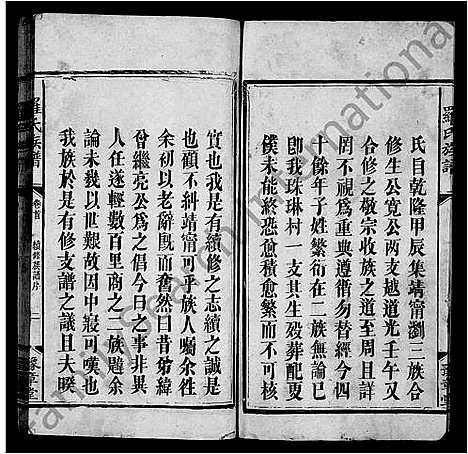 羅氏族譜
氏自乾隆甲辰集靖甯瀏二族合
修生公寛公兩支越道光壬午又
合修之敬宗收族之道至周且詳
罔不視爲重典遵循勿替經今四
十餘年子姓繁衍在二族無論
卽我珠琳村一支生殁葬配夏
僕未能終恐愈積愈繁而不可核
實也我是有續修之志續之誠是
也顧不糾靖甯可乎族人囑余徃
余初以老辭旣而奮然曰昔弟緯
曾繼亮公爲之倡今日之事非異
人任遂輕數百里商之二族題余
論未幾以世艱故因中寢可嘆也
我族於是有修支譜之議且夫睽
羅氏族譜
卷首
續修族譜序
二
豫章堂
FamilySearch International